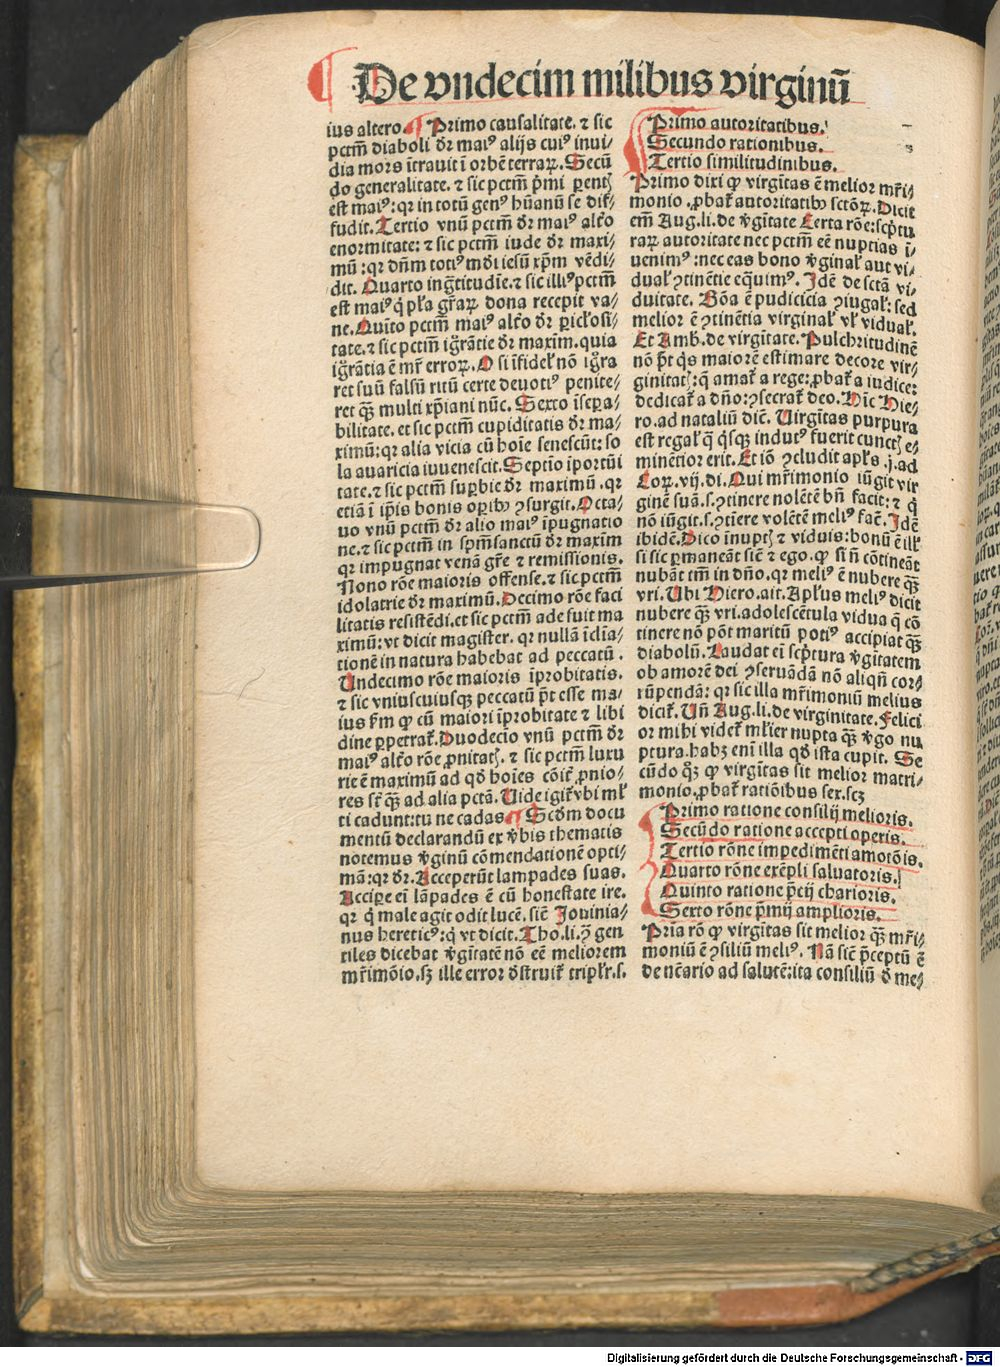 De vndecim milibus virginū
ius altero. Primo causalitate. ⁊ sic
pctm̄ diaboli dr̄ maiꝰ alijs cuiꝰ inui⸗
dia mors ītrauit ī orbē terraꝝ. Secū
do generalitate. ⁊ sic pctm̄ pͥmi
est maiꝰ: qr in totū genꝰ hūanū se dif⸗
fudit. Tertio vnū pctm̄ dr̄ maiꝰ alt̄o
enormitate: ⁊ sic pctm̄ iude dr̄ maxi⸗
mū: qr dn̄m totiꝰ mūdi iesū xp̄m vēdi⸗
dit. Quarto ingͣtitudīe. ⁊ sic illiꝰ pctm̄
est maiꝰ qͥ pl̄a gr̄aꝝ dona recepit va⸗
ne. Quīto pctm̄ maiꝰ alt̄o dr̄ ꝑicl̄osi⸗
tate. ⁊ sic pctm̄ igͣrātie dr̄ maxim. quia
igͣrātia ē mr̄ erroꝝ. O si īfidel̓ nō
ret suū falsū ritū certe deuotiꝰ penite⸗
ret qͣꝫ multi xp̄iani nūc. Sexto īseꝑa⸗
bilitate. et sic pctm̄ cupiditatis dr̄ ma⸗
ximū: qr alia vicia cū hoīe senescūt: so
la auaricia iuuenescit. Septīo īportūi
tate. ⁊ sic pctm̄ suꝑbie dr̄ maximū. qr
etiā ī ip̄is bonis oꝑibꝰ ꝯsurgit. Octa⸗
uo vnū pctm̄ dr̄ alio maiꝰ īpugnatio
ne. ⁊ sic pctm̄ in sp̄m sanctū dr̄ maxīm
qr impugnat venā gr̄e ⁊ remissionis.
Nono rōe maioris offense. ⁊ sic pctm̄
idolatrie dr̄ maximū. Decimo rōe faci
litatis resistēdi. et sic pctm̄ ade fuit ma
ximū: vt dicit magister. qr nullā īclīa⸗
tionē in natura habebat ad peccatū.
Undecimo rōe maioris īprobitatis.
⁊ sic vniuscuiusqꝫ peccatū pt̄ esse ma⸗
ius ꝙ cū maiori īprobitate ⁊ libi
dine ꝑpetrat̄. Duodecīo vnū pctm̄ dr̄
maiꝰ alt̄o rōe ꝓnitatꝭ. ⁊ sic pctm̄ luxu
rie ē maximū ad qd̄ hoīes cōit̄ ꝓnio⸗
res sr̄t qͣꝫ ad alia pctā. Uide igit̄ vbi ml̄
ti cadunt: tu ne cadas. Scd̄m docu
mentū declarandū ex v̓bis thematis
notemus v̓ginū cōmendationē opti⸗
mā: qr dr̄. Acceperūt lampades suas.
Accipe ei lāpades ē cū honestate ire.
qr qͥ male agit odit lucē. sic̄ Iouinia⸗
nus hereticꝰ: qͥ vt dicit. Tho. li. ꝯ̄ gen
tiles dicebat v̓gītatē nō eē meliorem
mr̄imōio. sꝫ ille error dͤstruit̄ tripl̄r. s.
Primo autoritatibus.
Secundo rationibus.
Tertio similitudinibus.
Primo dixi ꝙ virgītas ē melior mr̄i⸗
monio. ꝓbat̄ autoritatibꝰ sctōꝝ. Dicit
em̄ Aug. li. de v̓gītate Certa rōe: scp̄tu
raꝝ autoritate nec pctm̄ eē nuptias ī⸗
uenimꝰ: nec eas bono v̓ginal̓ aut vi⸗
dual̓ ꝯtinētie eq̄uimꝰ. Idē de sctā vi⸗
duitate. Bōa ē pudicicia ꝯiugal̓: sed
melior ē ꝯtinētia virginal̓ vl̓ vidual̓.
Et Amb. de virgītate. Pulchritudinē
nō pt̄ qͥs maiorē estimare decore vir⸗
ginitatꝭ: q̄ amat̄ a rege: ꝓbat̄ a iudice:
dedicat̄ a dn̄o: ꝯsecrat̄ deo. Hīc Hie⸗
ro. ad nataliū dic̄. Uirgītas purpura
est regal̓ q̄ qͥsqꝫ indutꝰ fuerit cunctꝭ e⸗
minētior erit. Et iō ꝯcludit apl̓s .j. ad
Coꝝ. vij. di. Qui mr̄imonio iūgit vir
ginē suā. s. ꝯtinere nolētē bn̄ facit: ⁊ qͥ
nō iūgit. s. ꝯtiere volētē meliꝰ fac̄. Idē
ibidē. Dico īnuptꝭ ⁊ viduis: bonū ē ill̓
si sic ꝑmaneāt sic̄ ⁊ ego. ꝙ si n̄ cōtineāt
nubāt tm̄ in dn̄o. qr meliꝰ ē nubere qͣꝫ
vri. Ubi Hiero. ait. Apl̓us meliꝰ dicit
nubere qͣꝫ vri. adolescētula vidua q̄ cō
tinere nō pōt maritū potiꝰ accipiat qͣꝫ
diabolū. Laudat ei scp̄tura v̓gītatem
ob amorē dei ꝯseruādā nō aliqn̄ cor⸗
rūpendā: qr sic illa mr̄imoniū melius
dicit̄. Un̄ Aug. li. de virginitate. Felici
or mihi videt̄ ml̓ier nupta qͣꝫ v̓go nu
ptura. habꝫ eni illa qd̄ ista cupit. Se
cūdo ꝙ virgītas sit melior matri⸗
monio. ꝓbat̄ ratiōibus sex. scꝫ
Primo ratione consilij melioris.
Secūdo ratione accepti operis.
Tertio rōne impedimēti amotōis.
Quarto rōne exēpli saluatoris.
Quinto ratione p̄cij charioris.
Sexto rōne p̄mij amplioris.
Pria rō ꝙ virgītas sit melior qͣꝫ mr̄i⸗
moniū ē ꝯsiliū meliꝰ. Nā sic̄ p̄ceptū ē
de nc̄ario ad salutē: ita consiliū dͤ me⸗
Digitalisierung gefördert durch die Deutsche Forschungsgemeinschaft - DFG